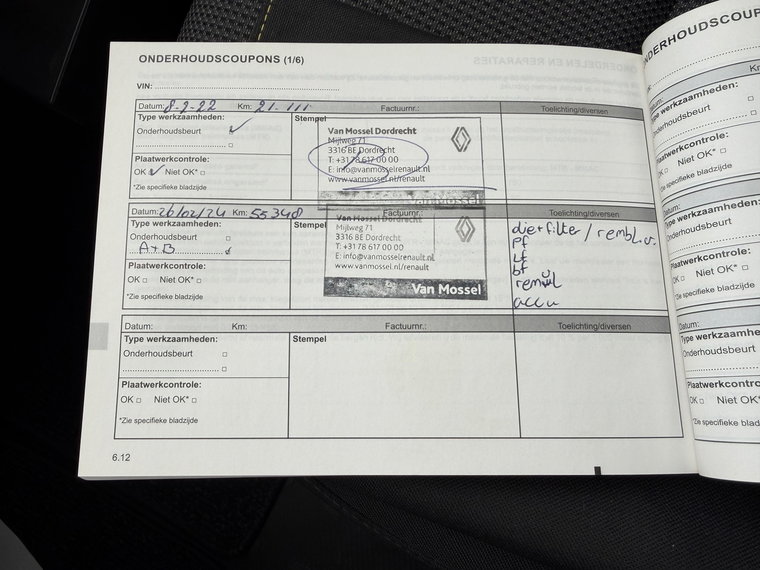 ONDERHOUDSCOUPONS (1/6)
VIN:
Datum: 8-2-22 Km: 21.111 Factuurnr.: Toelichting/diversen
Type werkzaamheden:
Onderhoudsbeurt
Plaatwerkcontrole:
OK Niet OK*
*Zie specifieke bladzijde
Stempel
Van Mossel Dordrecht
Mijlweg 71
3316 BE Dordrecht
T: +31 78 617 00 00
E: info@vanmosselrenault.nl
www.vanmossel.nl/renault
Van Mossel
Datum: 26/02/24 Km: 55348 Factuurnr.: Toelichting/diversen
Type werkzaamheden:
Onderhoudsbeurt
A+B
Plaatwerkcontrole:
OK Niet OK*
*Zie specifieke bladzijde
Stempel
Van Mossel Dordrecht
Mijlweg 71
3316 BE Dordrecht
T: +31 78 617 00 00
E: info@vanmosselrenault.nl
www.vanmossel.nl/renault
Van Mossel
pf
lf
bf
accu
Datum: Km: Factuurnr.: Toelichting/diversen
Type werkzaamheden:
Onderhoudsbeurt
Plaatwerkcontrole:
OK Niet OK*
*Zie specifieke bladzijde
Stempel
6.12
NDERHOUDSCOUP
Datum:
Type werkzaamhe
Onderhoudsbeurt
Plaatwerkcontro
OK Niet OK*
*Zie specifieke blad
Datum:
Type werkzaamhe
Onderhoudsbeurt
Plaatwerkcontro
OK Niet OK*
*Zie specifieke blad
Datum:
Type werkzaamhe
Onderhoudsbeurt
Plaatwerkcontrc
OK Niet OK*
*Zie specifieke blad